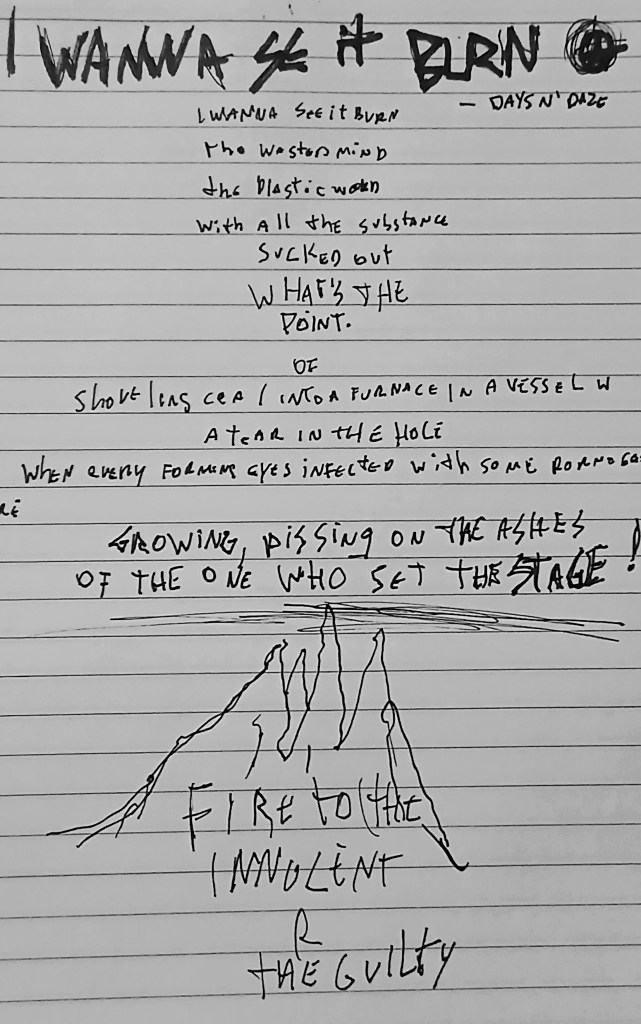 I WANNA SE it BURN
— DAYS N' DAZE
I WANNA SEE it BURN
the wasted MIND
the Plastic
with All the substance
SUCKED out
WHAT'S THE
POINT.
OF
Shoveling INTO A FURNACE IN A VESSEL W
A tEAR IN tHE HOLE
WHEN EVERY EYES iNFECTED With SOME
GROWING, PISSINg ON THE ASHES
OF THE ONE WHO SET THE STAGE!
FIRE TO THE
INNOCENT
R
THE GUILTY